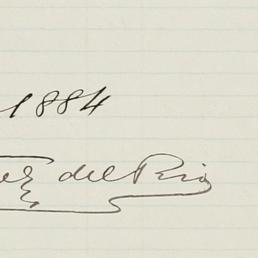 1884
del Rio